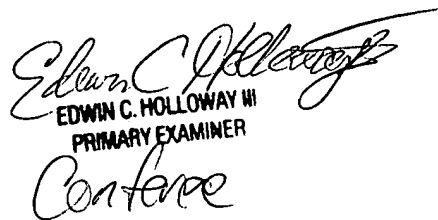 Edwin C Holloway III
EDWIN C. HOLLOWAY III
PRIMARY EXAMINER
Conferee